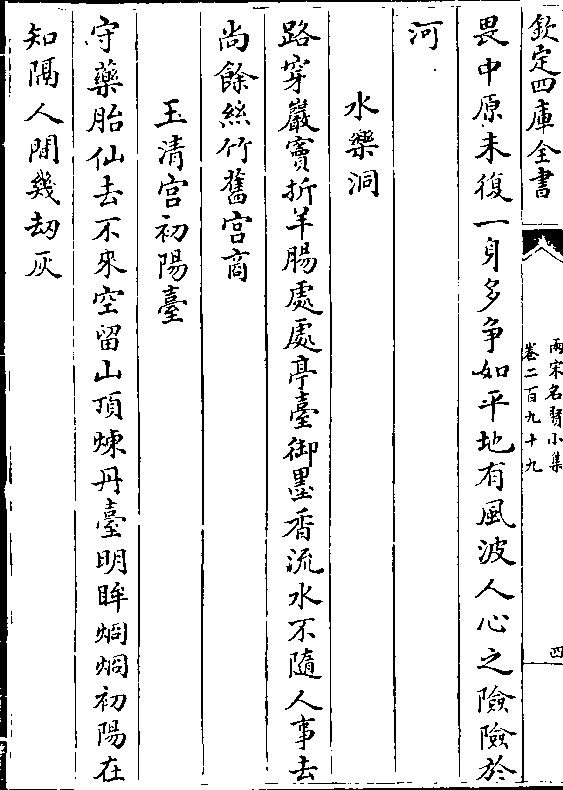 欽定四庫全書
兩宋名賢小集
卷二百九十九
四
畏中原未復一身多争如平地有風波人心之險險於
河
水樂洞
路穿巖竇折羊腸處處亭臺御墨香流水不隨人事去
尚餘絲竹舊宫商
玉清宫初陽臺
守藥胎仙去不來空留山頂煉丹臺明眸烱烱初陽在
知隔人間幾刼灰